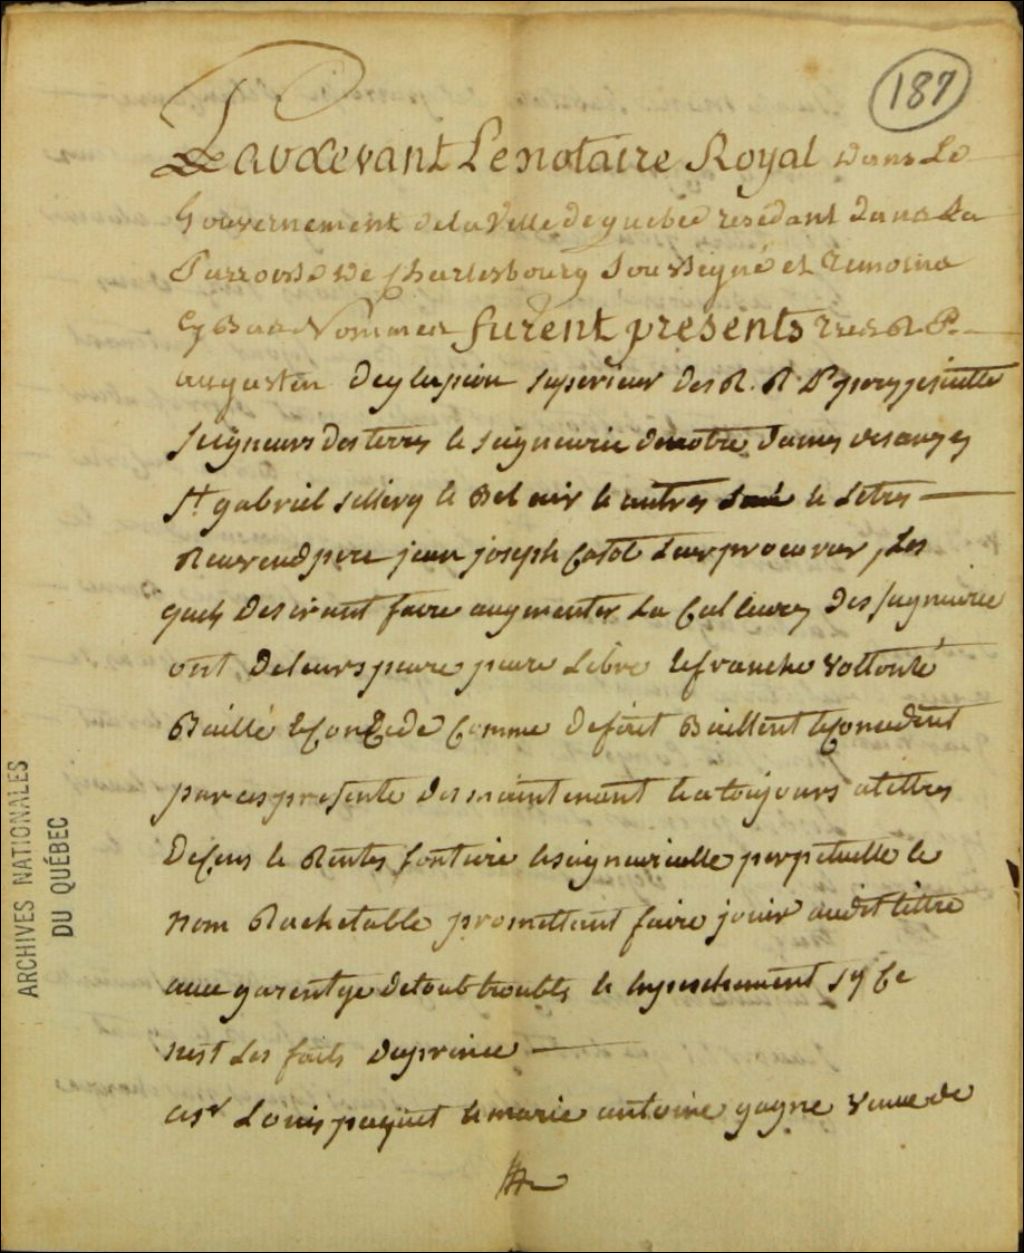 187
Pardevant Le notaire Royal dans Le
Gouvernement de la Ville de quebec residant dans La
Parroisse De Charlesbourg Soussigné et temoins
Cy Bas Nommez furent presents tres R. P.
augustin Deglapion Superieur des R. R. P. jesuitte
seigneurs des terres le seigneurie de notre dames desanges
St. gabriel sillery le Bel air le autres le Le tres
Reverend pere jean joseph Casot Leur procureur, Les
quels Desirant faire augmenter La Culture Des seigneurie
ont De leurs pure Libre le franche vollonté
Baillé le Concede Comme De fait Baillent le Concedent
par ces presente Des maintenant le a toujours atittres
De Cens le Rentes fontiere le seigneurialle perpetuelle le
nom Rachetable promettant faire jouir audit tittre
avec garentye de tout troubles le hypeschement sy Ce
nest Les faits du prince
a sr Louis paquet le marie antoine gagne veuve de
ARCHIVES NATIONALES
DU QUÉBEC